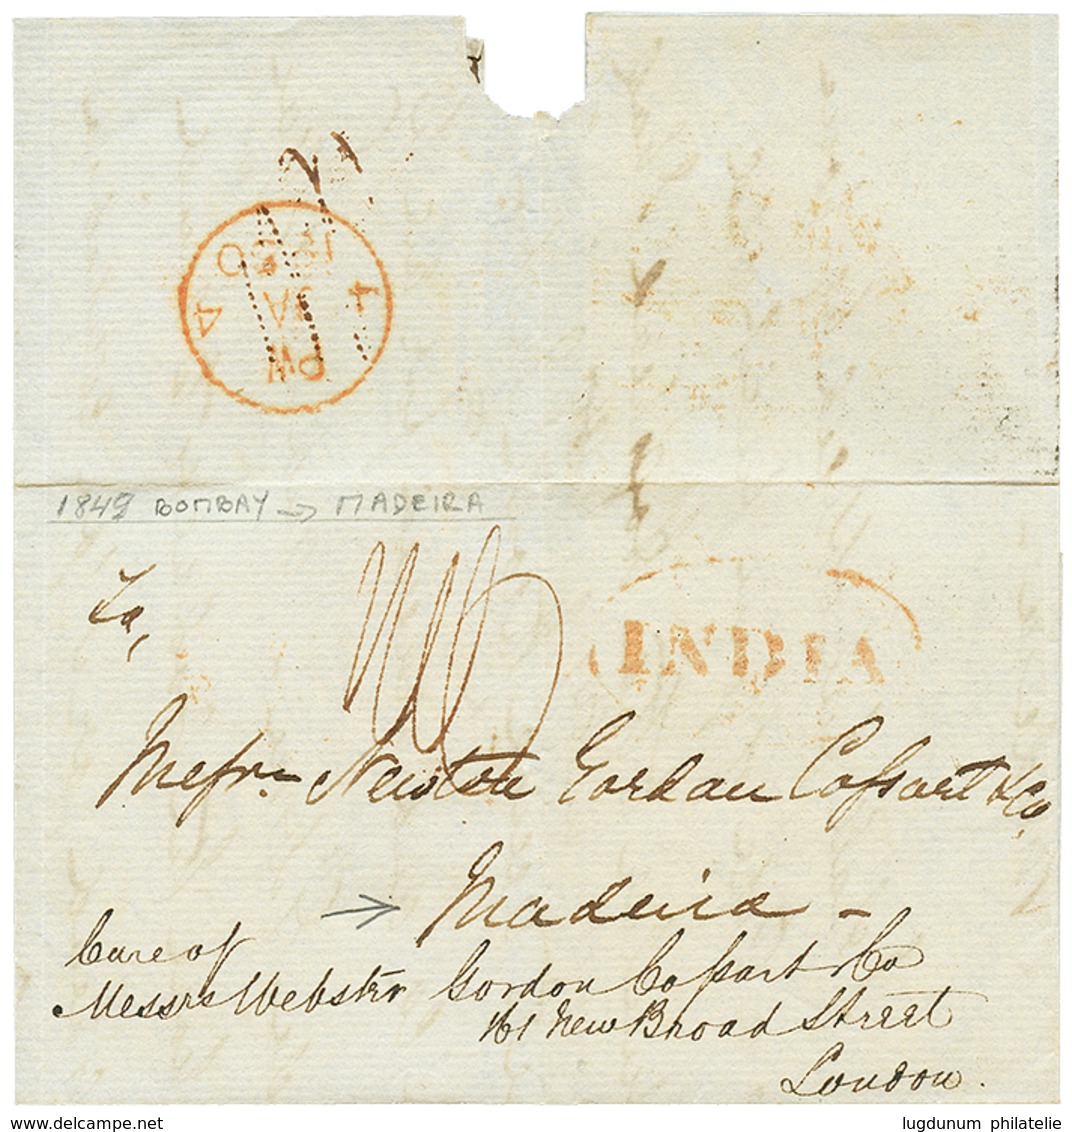 PW
4 JA 4
1850
1849 BOMBAY → MADEIRA
To,
INDIA
Messrs Newton Gordon Cossart & Co
Madeira –
Care of
Messrs Webster Gordon Cossart & Co
New Broad Street
London.
www.delcampe.net
lugdunum philatelie